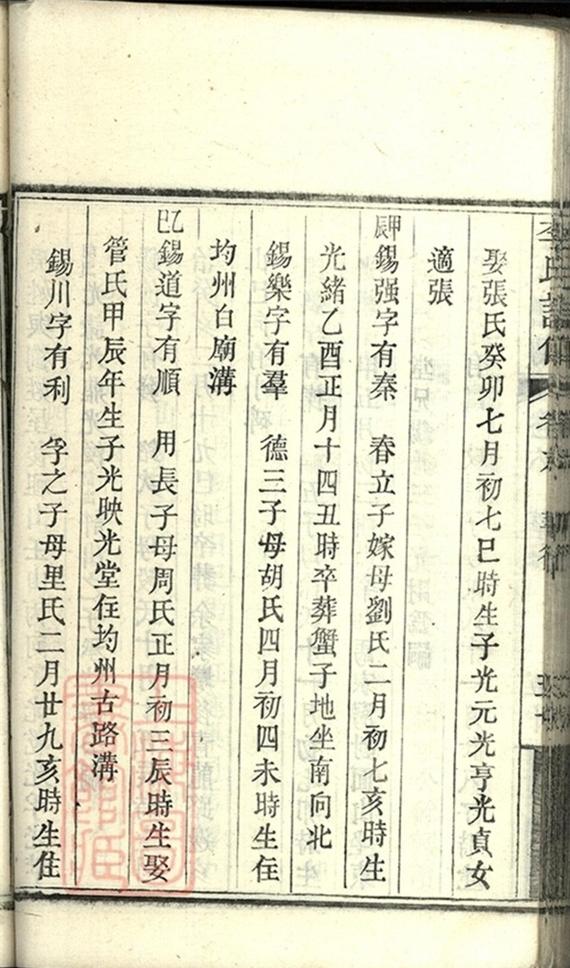 李氏譜傳 卷
娶張氏癸卯七月初七巳時生子光元光亨光貞女
適張
甲辰 錫强字有秦 春立子嫁母劉氏二月初七亥時生
光緒乙酉正月十四丑時卒葬蟹子地坐南向北
錫樂字有羣 德三子母胡氏四月初四未時生住
均州白廟溝
乙巳 錫道字有順 用長子母周氏正月初三辰時生娶
管氏甲辰年生子光映光堂住均州古路溝
錫川字有利 孚之子母里氏二月廿九亥時生住